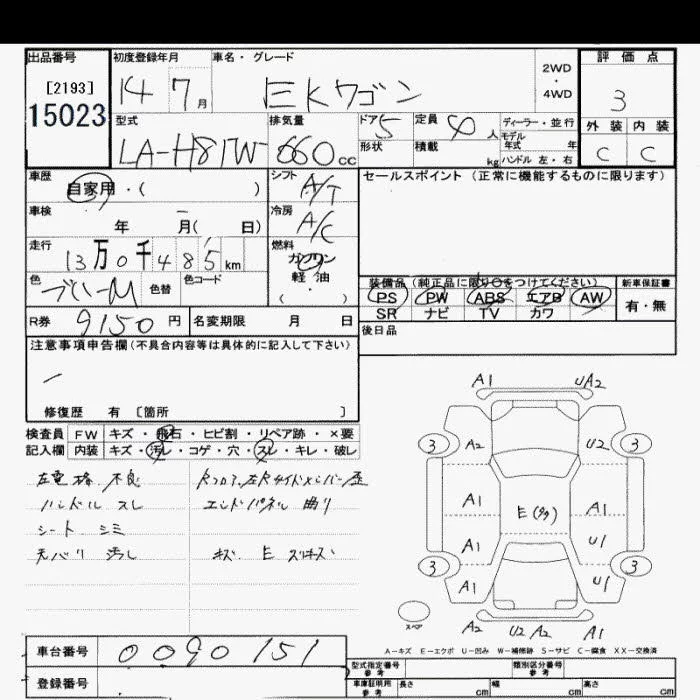 出品番号 初度登録年月 車名・グレード 2WD・4WD 評価点
[2193] 14 7月 EKワゴン 3
15023 型式 排気量 ドア 5 定員 4人 ディーラー・並行 外装 内装
LA-H81W 660cc 形状 積載 kg モデル年式 年 C C
ハンドル 左・右
車歴 シフト A/T セールスポイント（正常に機能するものに限ります）
自家用・( )
車検 年 月( 日) 冷房 A/C
走行 13万0千485km 燃料 ガソリン
色 ブルーM 色替 色コード 軽・油
・( ) 装備品（純正品に限り○をつけてください） 新車保証書
PS PW ABS エアB AW 有・無
SR ナビ TV カワ
R券 9150円 名変期限 月 日 後日品
注意事項申告欄(不具合内容等は具体的に記入して下さい)
修復歴 有 [箇所 ]
検査員 FW キズ・飛石・ヒビ割・リペア跡・×要
記入欄 内装 キズ・汚レ・コゲ・穴・スレ・キレ・破し
左電格 不良 Rフロア、左Rサイドメンバー
ハンドル スレ エンドパネル 曲り
シート シミ
天バリ 汚レ キズ E スリキズ
A1 UA2
3 A2 U2 3
A1 E(多) A1
A1 U1
3 A1 U1 3
スペア A2 U2 A2 A1
A-キズ E-エクボ U-凹み W-補修跡 S-サビ C-腐食 XX-交換済
車台番号 0090151 型式指定番号 参考 類別区分番号 参考
登録番号 車庫証明用 参考 長さ cm 幅 cm 高さ cm